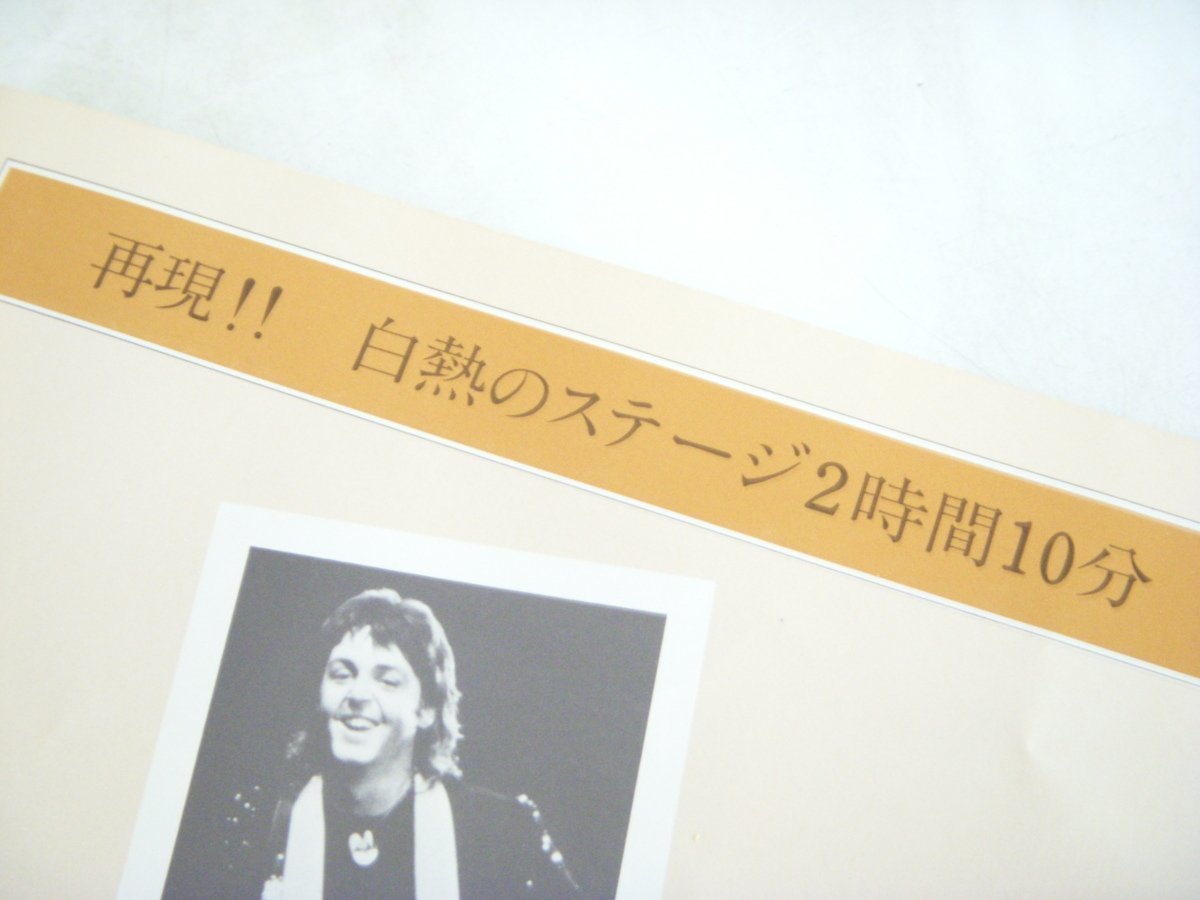 再現!!　白熱のステージ2時間10分